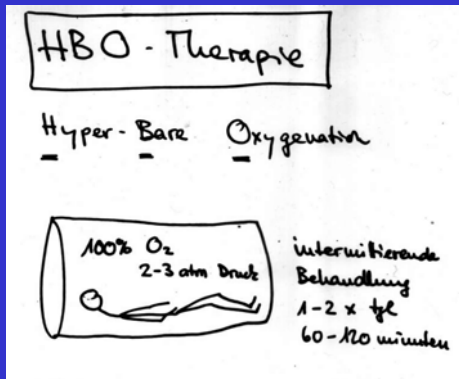 HBO - Therapie
Hyper-Bare Oxygenation
100% O₂
2-3 atm Druck
intermittierende
Behandlung
1-2 x tgl
60-120 minuten